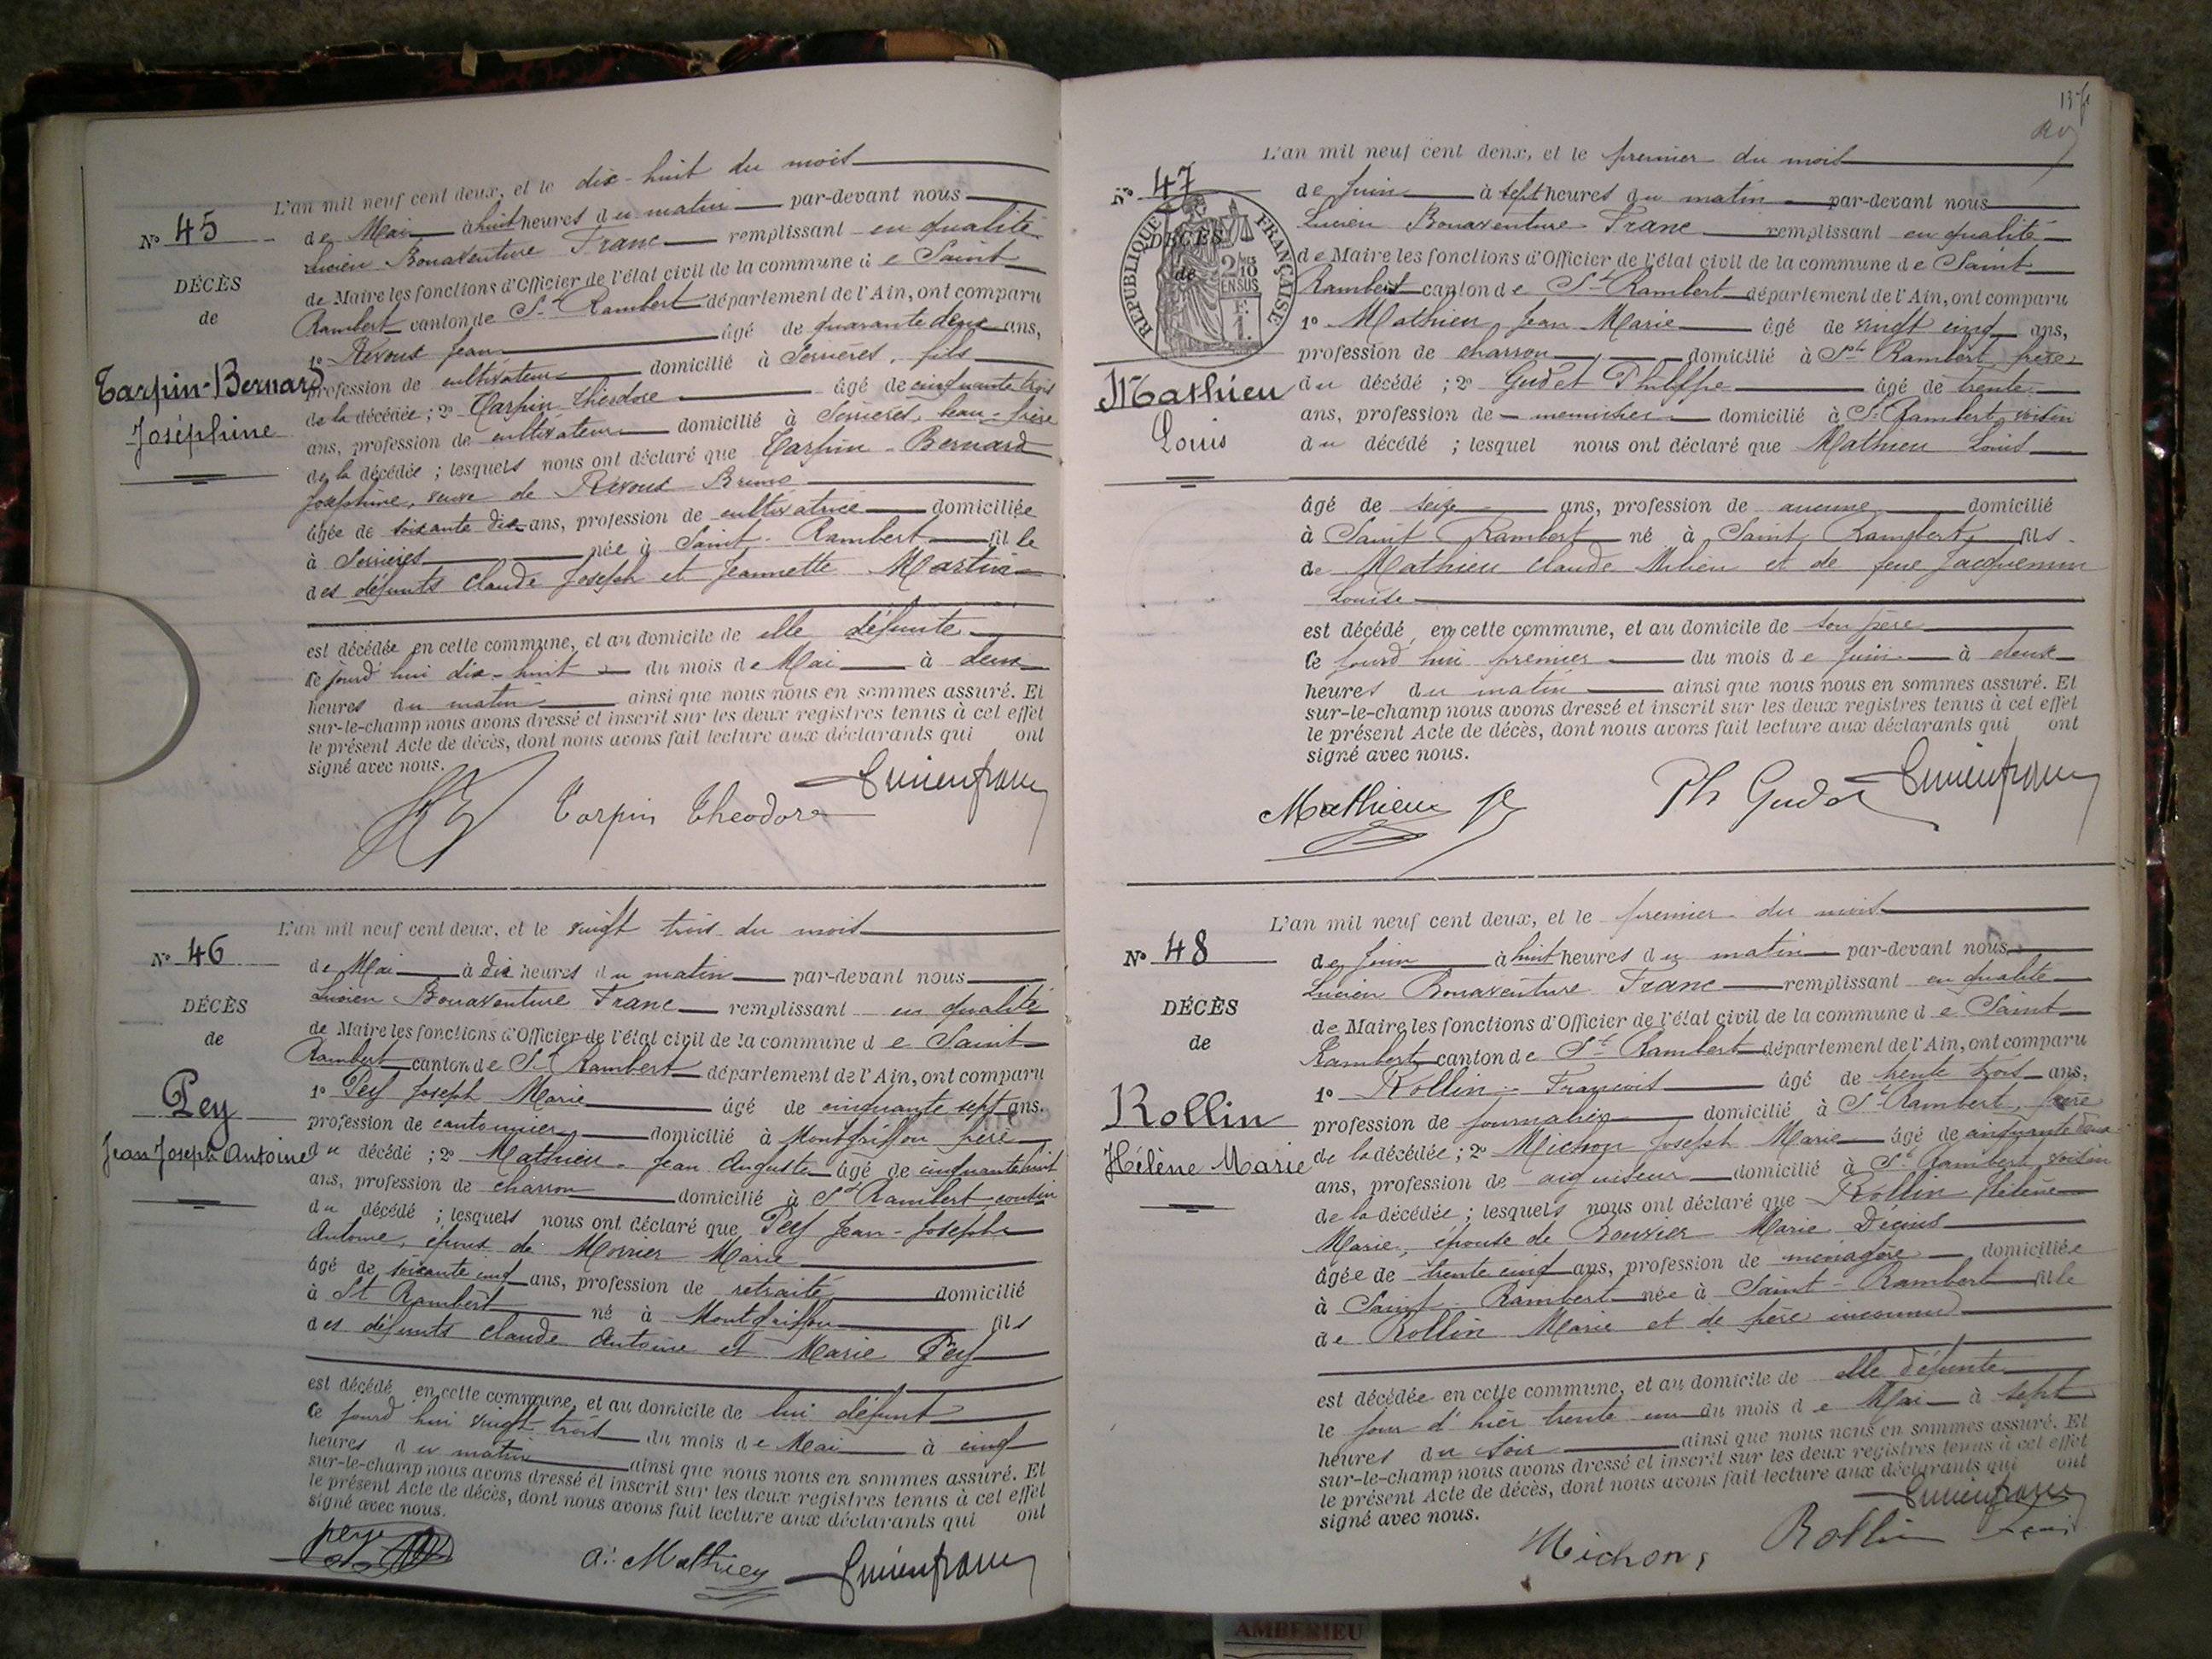 L'an mil neuf cent deux, et le dix-huit du mois
No 45
de Mai à huit heures du matin par-devant nous
Lucien Bonaventure Franc remplissant en qualité
DÉCÈS
de Maire les fonctions d'Officier de l'état civil de la commune de Saint
de
Rambert canton de St Rambert département de l'Ain, ont comparu
1o Révoux Jean âgé de quarante deux ans,
Tarpin-Bernard
profession de cultivateur domicilié à Serrières, fils
Joséphine
de la décédée ; 2o Tarpin Théodore âgé de cinquante trois
ans, profession de cultivateur domicilié à Serrières, beau-frère
de la décédée ; lesquels nous ont déclaré que Tarpin-Bernard
Joséphine, veuve de Révoux Bruno
âgée de soixante dix ans, profession de cultivatrice domiciliée
à Serrières née à Saint-Rambert fille
des défunts Claude Joseph et Jeannette Martin
est décédée en cette commune, et au domicile de elle défunte
ce jourd'hui dix-huit du mois de Mai à deux
heures du matin ainsi que nous nous en sommes assuré. Et
sur-le-champ nous avons dressé et inscrit sur les deux registres tenus à cet effet
le présent Acte de décès, dont nous avons fait lecture aux déclarants qui ont
signé avec nous.
Tarpin Théodore Lucien franc
L'an mil neuf cent deux, et le vingt trois du mois
No 46
de Mai à dix heures du matin par-devant nous
Lucien Bonaventure Franc remplissant en qualité
DÉCÈS
de Maire les fonctions d'Officier de l'état civil de la commune de Saint
de
Rambert canton de St Rambert département de l'Ain, ont comparu
1o Pey Joseph Marie âgé de cinquante sept ans.
Pey
profession de cantonnier domicilié à Montgriffon frère
Jean Joseph Antoine
du décédé ; 2o Mathieu Jean Auguste âgé de cinquante huit
ans, profession de charron domicilié à St Rambert cousin
du décédé ; lesquels nous ont déclaré que Pey Jean-Joseph
Antoine, époux de Morrier Marie
âgé de soixante cinq ans, profession de retraité domicilié
à St Rambert né à Montgriffon fils
des défunts Claude Antoine et Marie Pey
est décédé en cette commune, et au domicile de lui défunt
ce jourd'hui vingt trois du mois de Mai à cinq
heures du matin ainsi que nous nous en sommes assuré. Et
sur-le-champ nous avons dressé et inscrit sur les deux registres tenus à cet effet
le présent Acte de décès, dont nous avons fait lecture aux déclarants qui ont
signé avec nous.
pey A. Mathieu Lucien franc
L'an mil neuf cent deux, et le premier du mois
No 47
de Juin à sept heures du matin par-devant nous
Lucien Bonaventure Franc remplissant en qualité
RÉPUBLIQUE FRANÇAISE
DÉCÈS
2/10 EN SUS
de Maire les fonctions d'Officier de l'état civil de la commune de Saint
de
Rambert canton de St Rambert département de l'Ain, ont comparu
1o Mathieu Jean Marie âgé de vingt cinq ans,
profession de charron domicilié à St Rambert frère
Mathieu
du décédé ; 2o Gudet Philippe âgé de trente
ans, profession de menuisier domicilié à St Rambert, voisin
Louis
du décédé ; lesquel nous ont déclaré que Mathieu Louis
âgé de seize ans, profession de aucune domicilié
à Saint Rambert né à Saint Rambert fils
de Mathieu Claude et de feue Jacquemin
Louise
est décédé en cette commune, et au domicile de son père
ce jourd'hui premier du mois de Juin à deux
heures du matin ainsi que nous nous en sommes assuré. Et
sur-le-champ nous avons dressé et inscrit sur les deux registres tenus à cet effet
le présent Acte de décès, dont nous avons fait lecture aux déclarants qui ont
signé avec nous.
Mathieu Ph Gudet Lucien franc
L'an mil neuf cent deux, et le premier du mois
No 48
de Juin à huit heures du matin par-devant nous
Lucien Bonaventure Franc remplissant en qualité
DÉCÈS
de Maire les fonctions d'Officier de l'état civil de la commune de Saint
de
Rambert canton de St Rambert département de l'Ain, ont comparu
1o Rollin François âgé de trente trois ans,
Rollin
profession de journalier domicilié à St Rambert, frère
Hélène Marie
de la décédée ; 2o Michon Joseph Marie âgé de cinquante deux
ans, profession de aiguiseur domicilié à St Rambert voisin
de la décédée ; lesquels nous ont déclaré que Rollin Hélène
Marie, épouse de Bouvier Marie Décius
âgée de trente cinq ans, profession de ménagère domiciliée
à Saint-Rambert née à Saint-Rambert fille
de Rollin Marie et de père inconnu
est décédée en cette commune, et au domicile de elle défunte
le jour d'hier trente un du mois de Mai à sept
heures du soir ainsi que nous nous en sommes assuré. Et
sur-le-champ nous avons dressé et inscrit sur les deux registres tenus à cet effet
le présent Acte de décès, dont nous avons fait lecture aux déclarants qui ont
signé avec nous.
Lucien franc
Michon Rollin
AMBERIEU